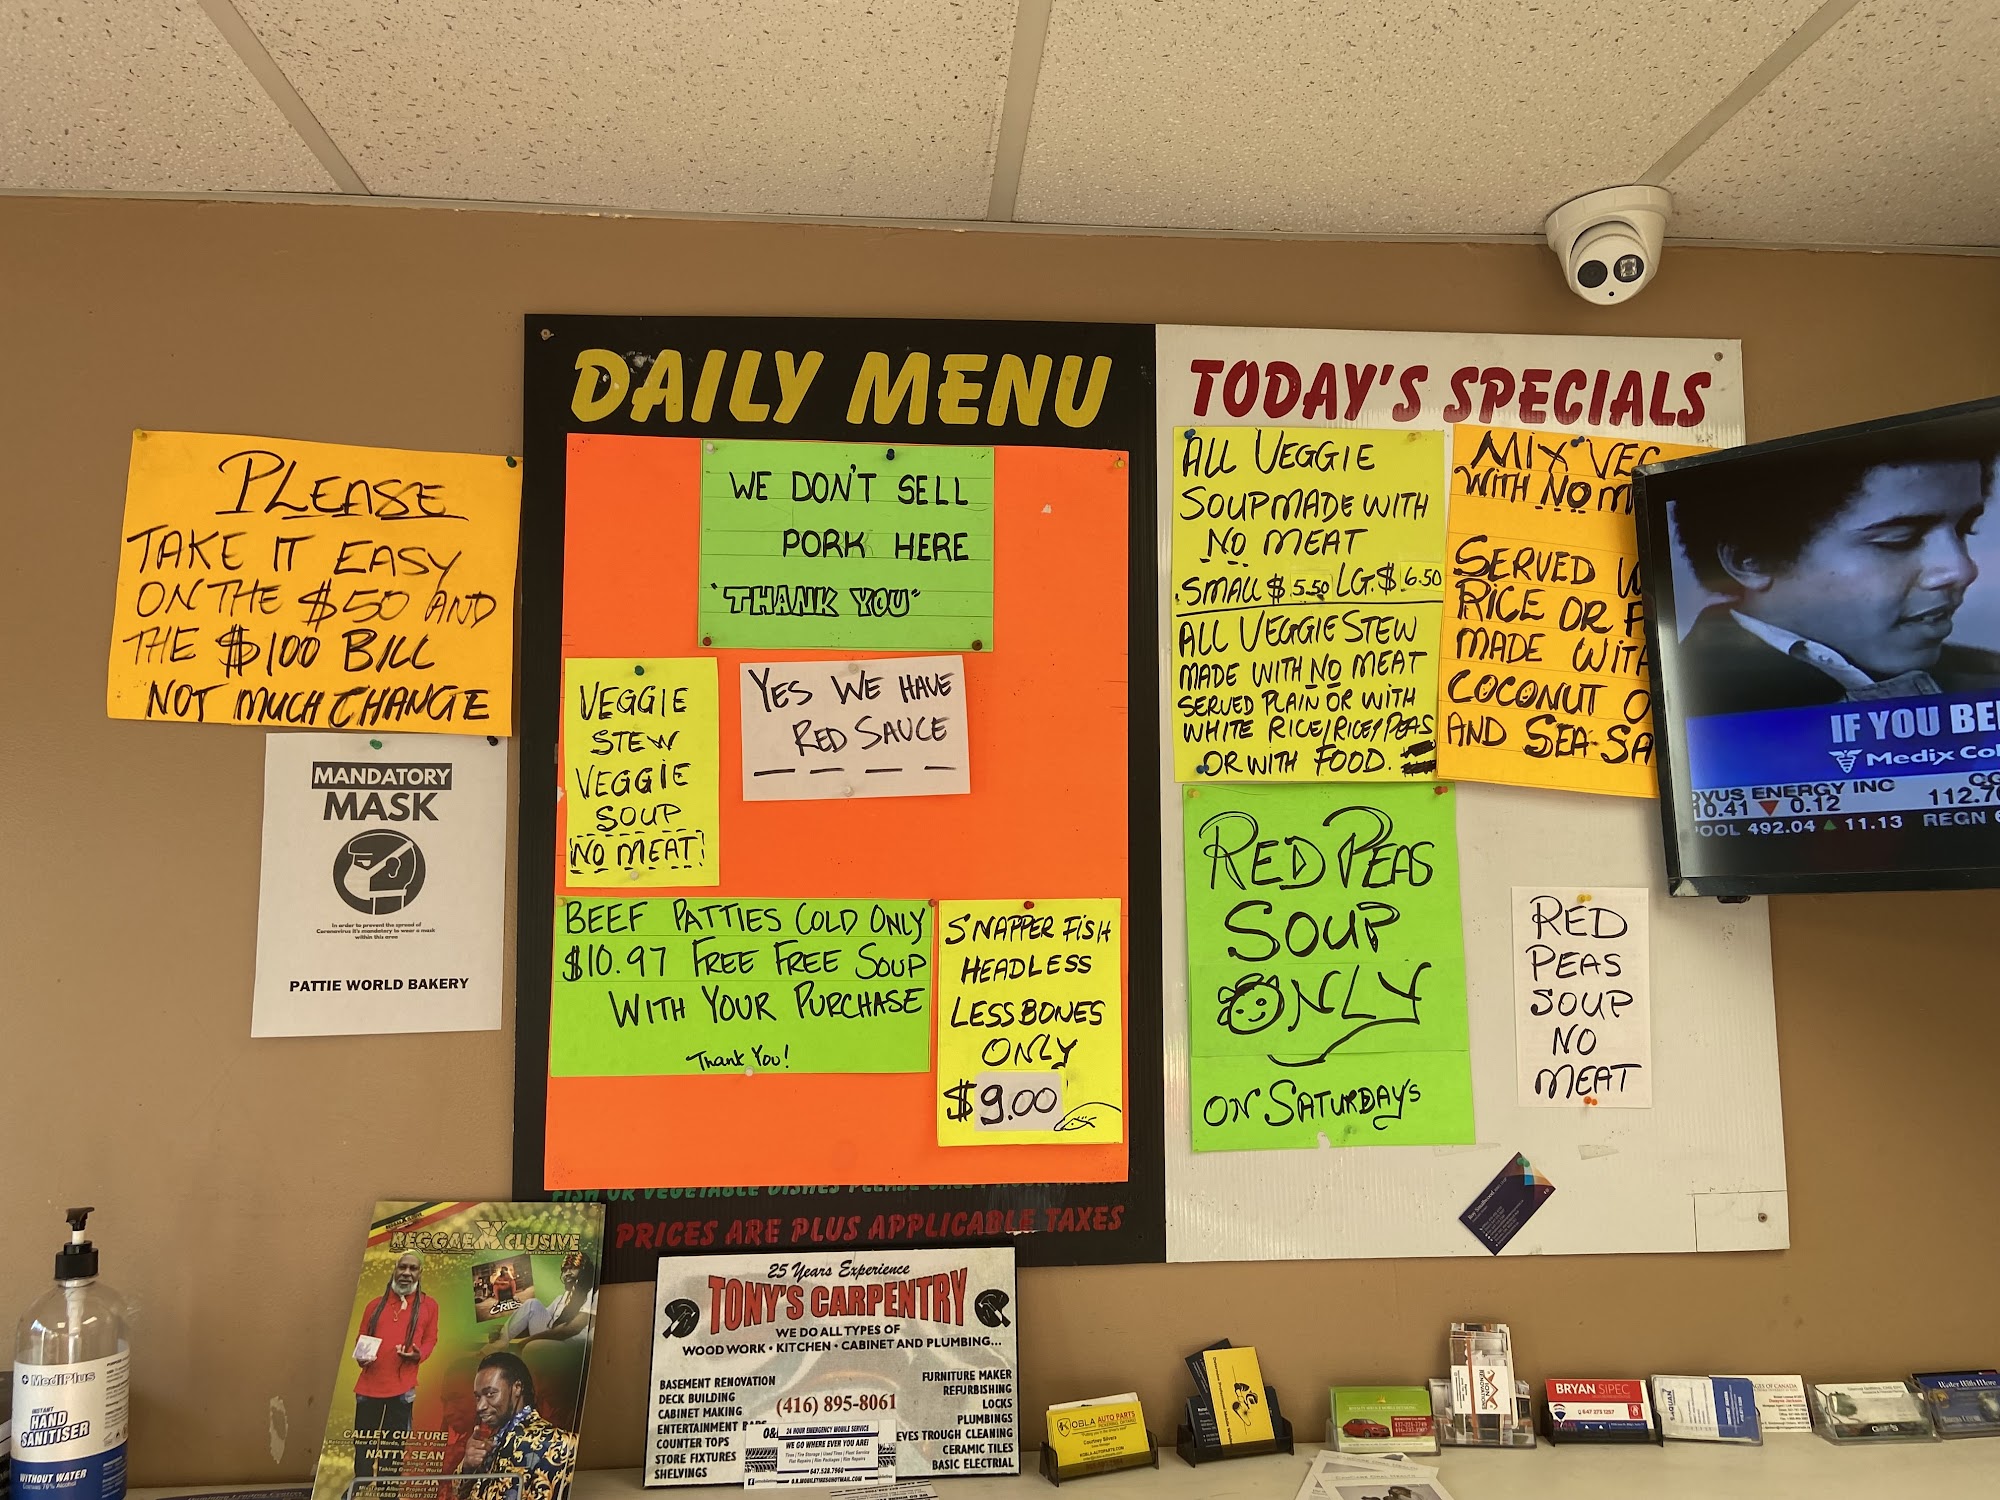 DAILY MENU
TODAY'S SPECIALS
PLEASE
TAKE IT EASY
ON THE $50 AND
THE $100 BILL
NOT MUCH CHANGE
MANDATORY
MASK
In order to prevent the spread of
Coronavirus it's mandatory to wear a mask
within this area
PATTIE WORLD BAKERY
WE DON'T SELL
PORK HERE
"THANK YOU"
VEGGIE
STEW
VEGGIE
SOUP
NO MEAT
YES WE HAVE
RED SAUCE
BEEF PATTIES COLD ONLY
$10.97 FREE FREE SOUP
WITH YOUR PURCHASE
Thank You!
SNAPPER FISH
HEADLESS
LESS BONES
ONLY
$9.00
PRICES ARE PLUS APPLICABLE TAXES
ALL VEGGIE
SOUP MADE WITH
NO MEAT
SMALL $5.50 LG.$ 6.50
ALL VEGGIE STEW
MADE WITH NO MEAT
SERVED PLAIN OR WITH
WHITE RICE/RICE/PEAS
OR WITH FOOD.
MIX VEG
WITH NO M
SERVED W
RICE OR
MADE WITH
COCONUT O
AND SEA-SA
RED PEAS
SOUP
ONLY
ON SATURDAY'S
RED
PEAS
SOUP
NO
MEAT
IF YOU BE
Medix Co
OVUS ENERGY INC
10.41 ▼ 0.12 112.7
OOL 492.04 ▲ 11.13 REGN
MediPlus
INSTANT
HAND
SANITISER
WITHOUT WATER
REGGAE XCLUSIVE
CRIES
CALLEY CULTURE
NATTY SEAN
New Single CRIES
Taking Over The World
25 Years Experience
TONY'S CARPENTRY
WE DO ALL TYPES OF
WOOD WORK • KITCHEN • CABINET AND PLUMBING...
BASEMENT RENOVATION
DECK BUILDING
CABINET MAKING
ENTERTAINMENT
COUNTER TOPS
STORE FIXTURES
SHELVINGS
(416) 895-8061
FURNITURE MAKER
REFURBISHING
LOCKS
PLUMBINGS
EVES TROUGH CLEANING
CERAMIC TILES
BASIC ELECTRIAL
24 HOUR EMERGENCY MOBILE SERVICE
WE GO WHERE EVER YOU ARE!
647.528.7968
KOBLA AUTO PARTS
Courtney Silvera
BRYAN SIPEC
647 273 1297